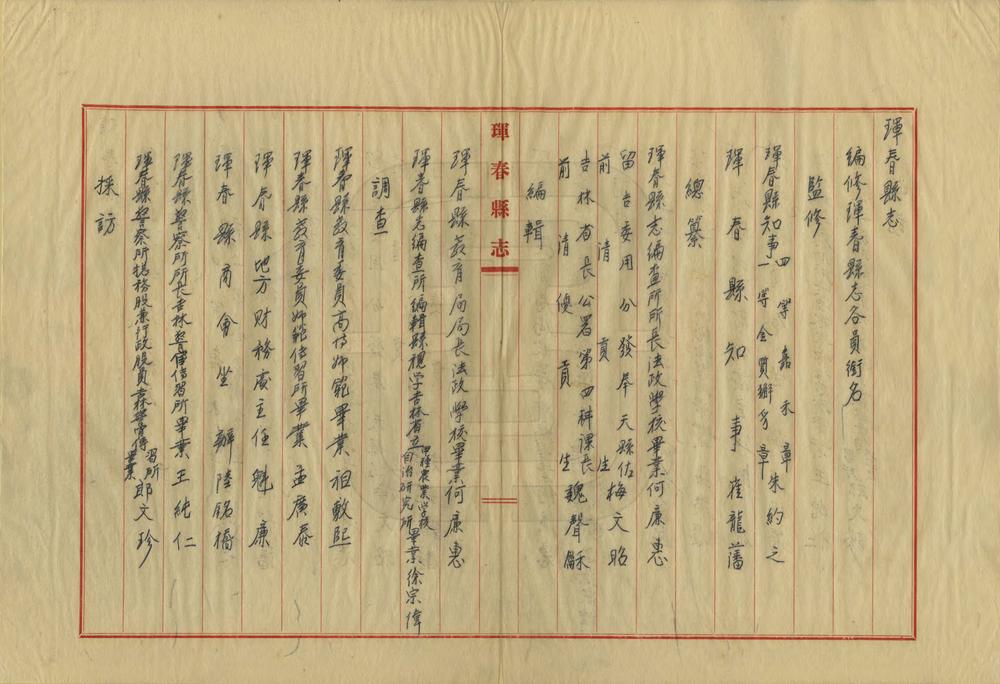 琿春縣志
編修琿春縣志各員銜名
監修
琿春縣知事四等嘉禾章一等金質獬豸章朱約之
琿春縣知事崔龍藩
總纂
琿春縣志編查所所長法政學校畢業何廉惠
前清貢生留吉委用分發奉天縣佐梅文昭
前清優貢生吉林省長公署第四科課長魏聲龢
琿春縣志
編輯
琿春縣教育局局長法政學校畢業何廉惠
琿春縣志編查所編輯縣視學吉林省立甲種農業學校自治研究所畢業徐宗偉
調查
琿春縣教育委員高等師範畢業祖敷熙
琿春縣教育委員師範傳習所畢業孟廣泰
琿春縣地方財務處主任魁廉
琿春縣商會坐辦陸銘橋
琿春縣警察所所長吉林警官傳習所畢業王純仁
琿春縣警察所總務股兼行政股員吉林警官傳習所畢業郎文珍
採訪